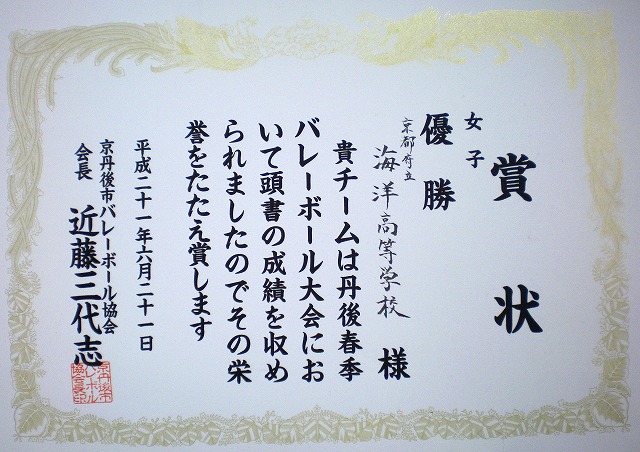 賞状
女子
優勝
京都府立
海洋高等学校 様
貴チームは丹後春季
バレーボール大会にお
いて頭書の成績を収め
られましたのでその栄
誉をたたえ賞します
平成二十一年六月二十一日
京丹後市バレーボール協会
会長 近藤三代志
京丹後市
バレーボール
協会長印